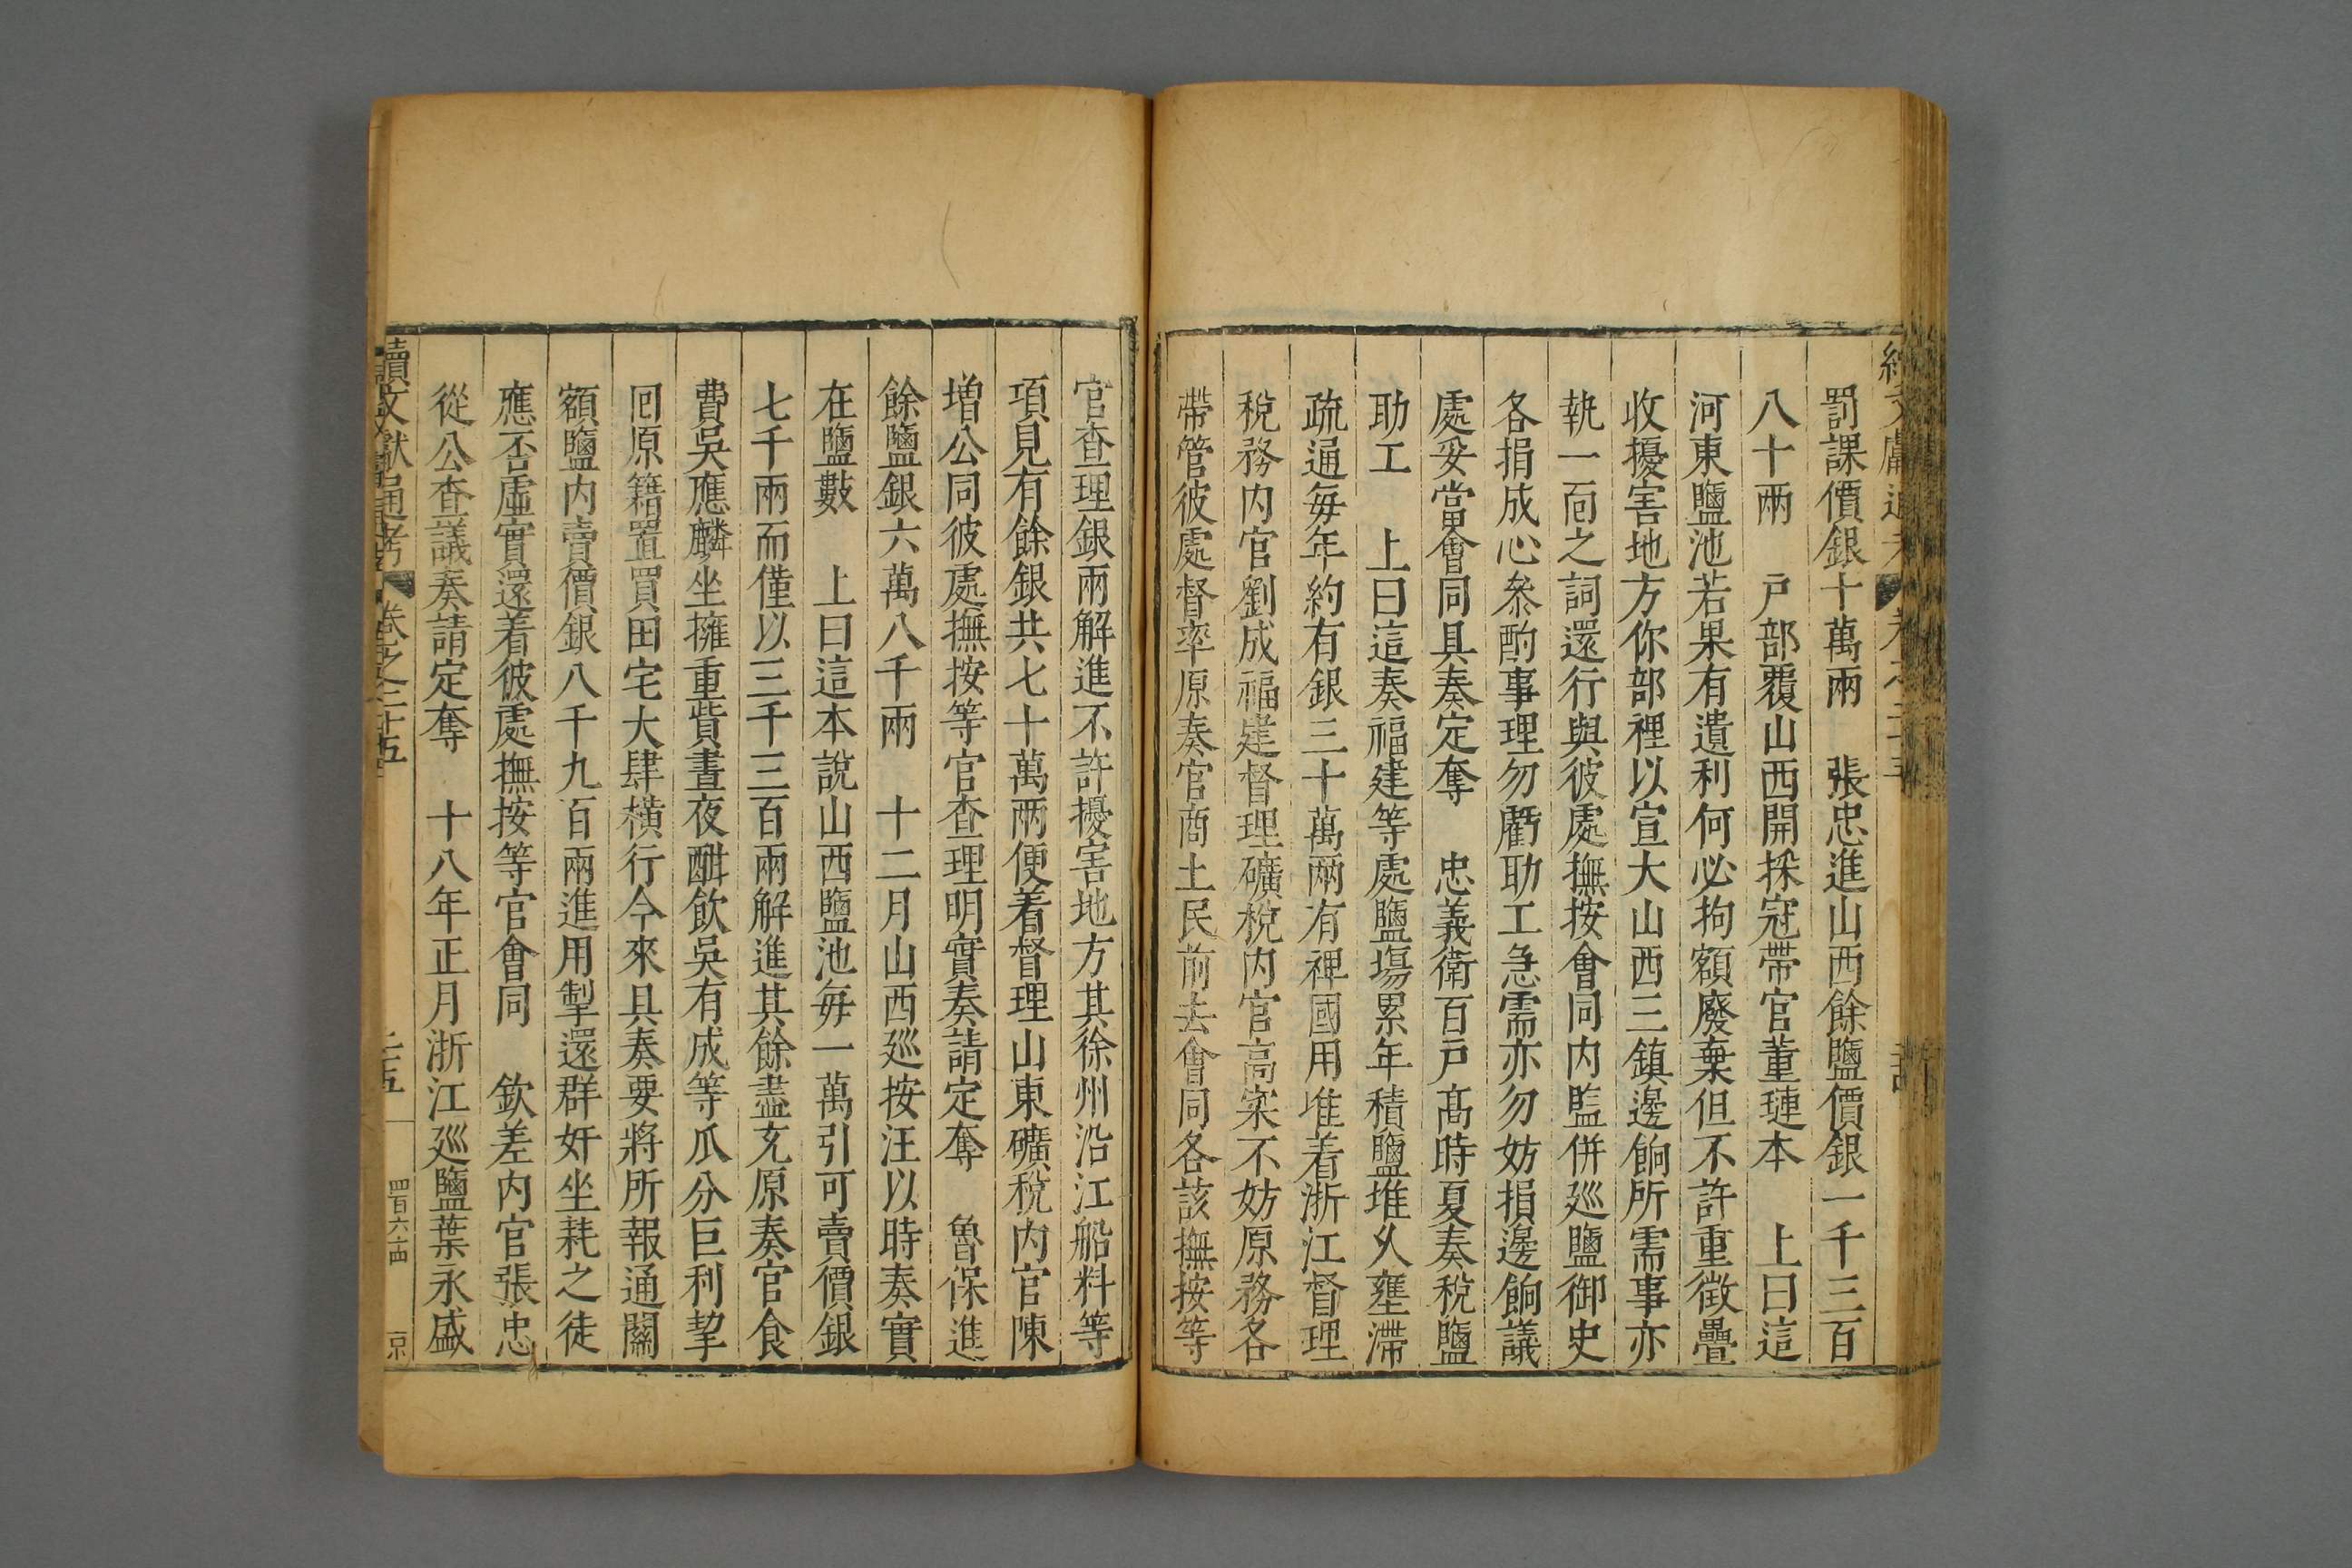 罰課價銀十萬兩　張忠進山西餘鹽價銀一千三百
八十兩　戶部覆山西開採冠帶官董璉本　上曰這
河東鹽池若果有遺利何必拘額廢棄但不許重徵疊
收擾害地方你部裡以宣大山西三鎮邊餉所需事亦
執一面之詞還行與彼處撫按會同內監併廵鹽御史
各捐成心叅酌事理勿虧助工急需亦勿妨損邊餉議
處妥當會同具奏定奪　忠義衛百戶髙時夏奏稅鹽
助工　上曰這奏福建等處鹽塲累年積鹽堆乆壅滯
疏通每年約有銀三十萬兩有裨國用准着浙江督理
稅務內官劉成福建督理礦稅內官高寀不妨原務各
帶管彼處督率原奏官商土民前去會同各該撫按等
官查理銀兩解進不許擾害地方其徐州沿江船料等
項見有餘銀共七十萬兩便着督理山東礦稅內官陳
增公同彼處撫按等官查理明實奏請定奪　魯保進
餘鹽銀六萬八千兩　十二月山西廵按汪以時奏實
在鹽數　上曰這本說山西鹽池每一萬引可賣價銀
七千兩而僅以三千三百兩解進其餘盡充原奏官食
費吳應麟坐擁重貲晝夜酣飲吳有成等瓜分巨利挈
囘原籍置買田宅大肆橫行今來具奏要將所報通關
額鹽內賣價銀八千九百兩進用掣還群奸坐耗之徒
應否虛實還着彼處撫按等官會同　欽差內官張忠
從公查議奏請定奪　十八年正月浙江廵鹽葉永盛
續文獻通考　卷之二十五　二五　四百六十四　京